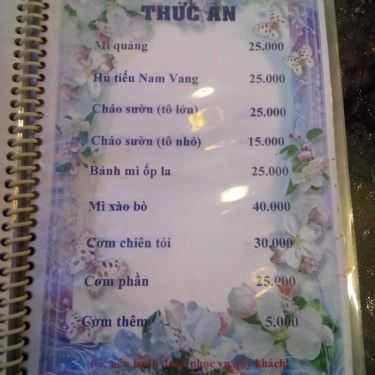 THỨC ĂN
Mì quảng 25.000
Hủ tiếu Nam Vang 25.000
Cháo sườn (tô lớn) 25.000
Cháo sườn (tô nhỏ) 15.000
Bánh mì ốp la 25.000
Mì xào bò 40.000
Cơm chiên tỏi 30.000
Cơm phần 25.000
Cơm thêm 5.000
hạnh được phục vụ quý khách!